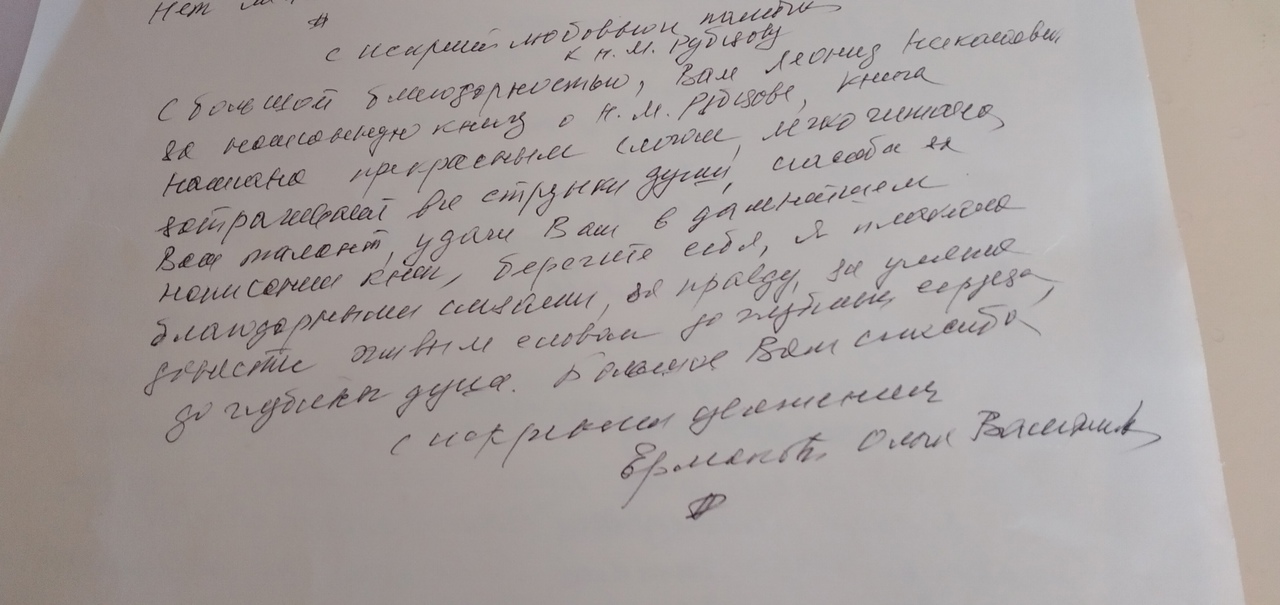 Нет
с искренней любовью памяти
к Н. М. Рубцову
С большой благодарностью, Вам Леонид Николаевич
за написанную книгу о Н. М. Рубцове, книга
написана прекрасным слогом, легко читаема,
затрагивает все струнки души, спасибо за
Ваш талант, удачи Вам в дальнейшем
написании книг, берегите себя, я плакала
благодарными слезами, за правду, за умение
донести живым словом до глубины сердца,
до глубины души. Большое Вам спасибо,
с искренним уважением
Ермакова Ольга Васильевна